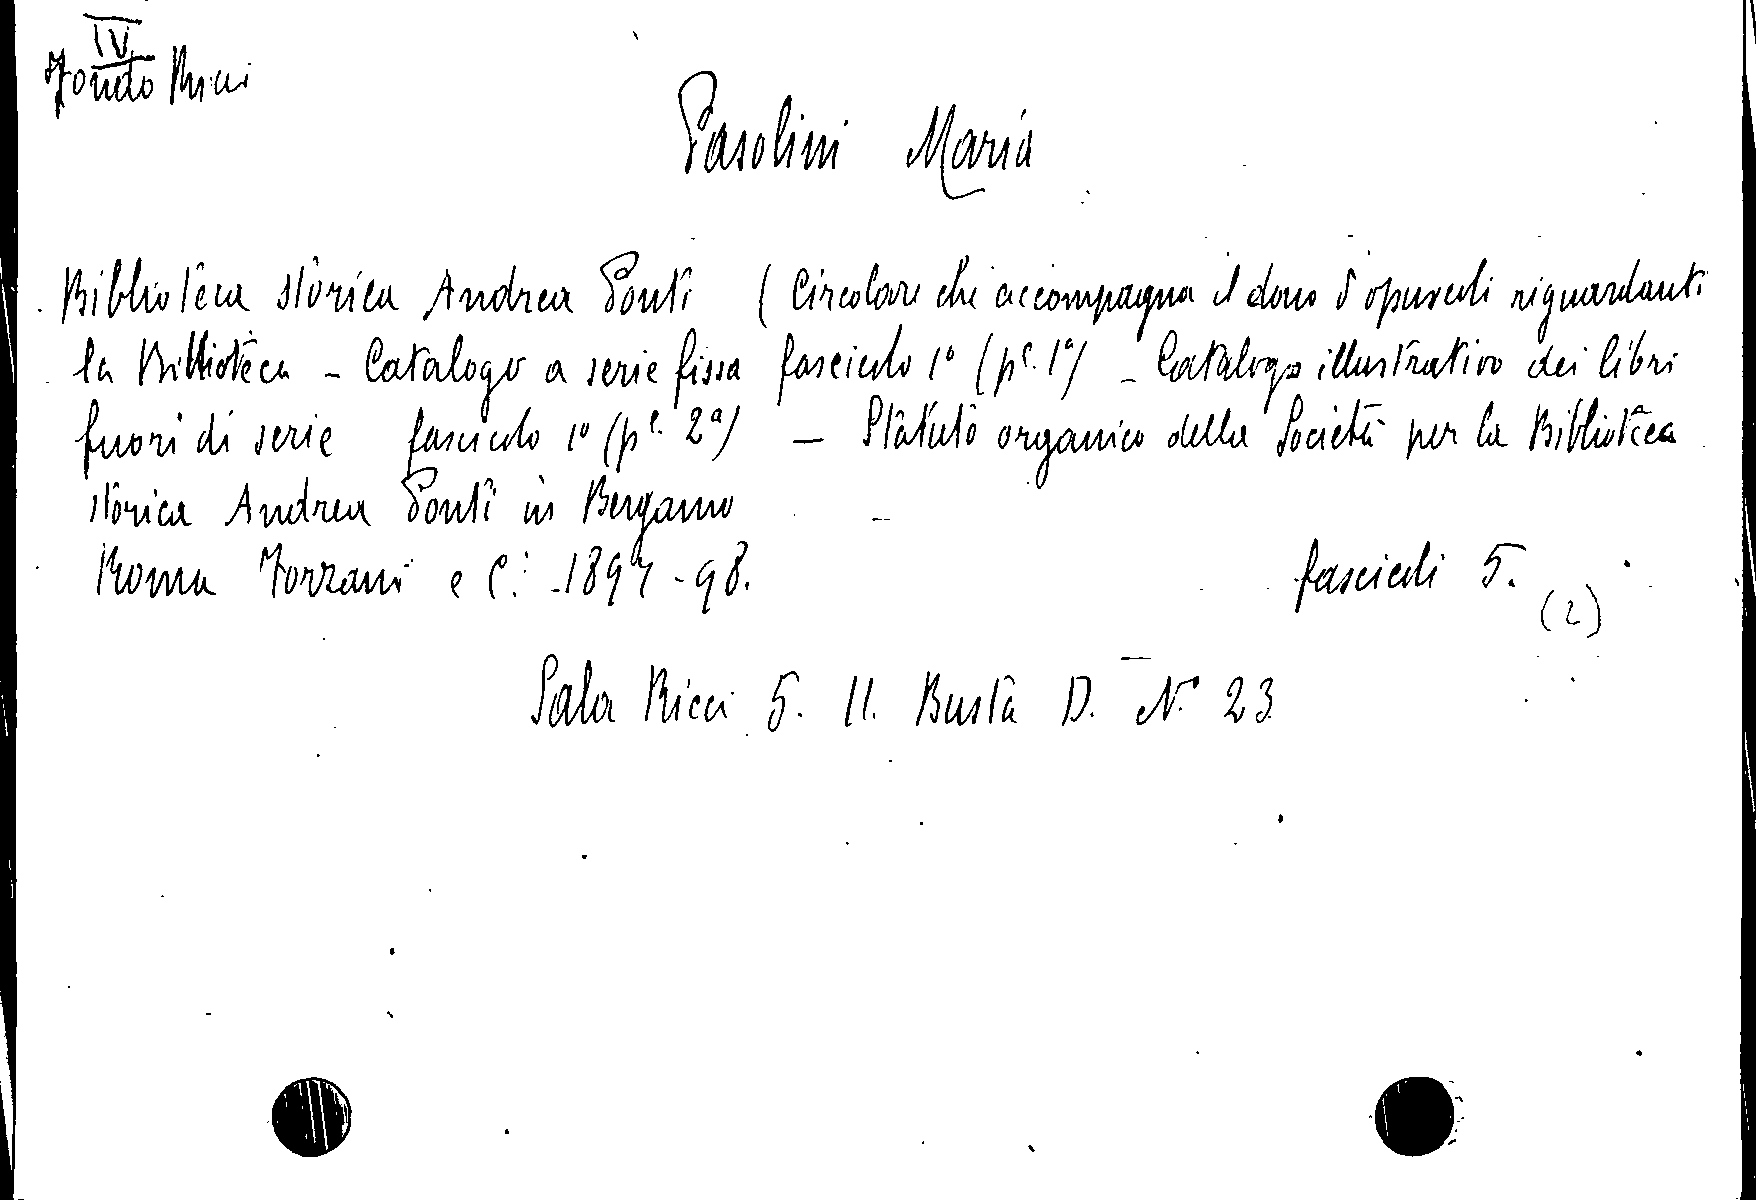 IV
Fondo Ricci
Pasolini Maria
Biblioteca storica Andrea Ponti ( Circolare che accompagna il dono d'opuscoli riguardanti
la Biblioteca - Catalogo a serie fissa fascicolo 1º (pe. 1ª) - Catalogo illustrativo dei libri
fuori di serie fascicolo 1º (pe. 2ª) - Statuto organico della Società per la Biblioteca
storica Andrea Ponti in Bergamo
Roma Forzani e C. 1897-98. fascicoli 5.
(2)
Sala Ricci 5. II. Busta D. Nº 23